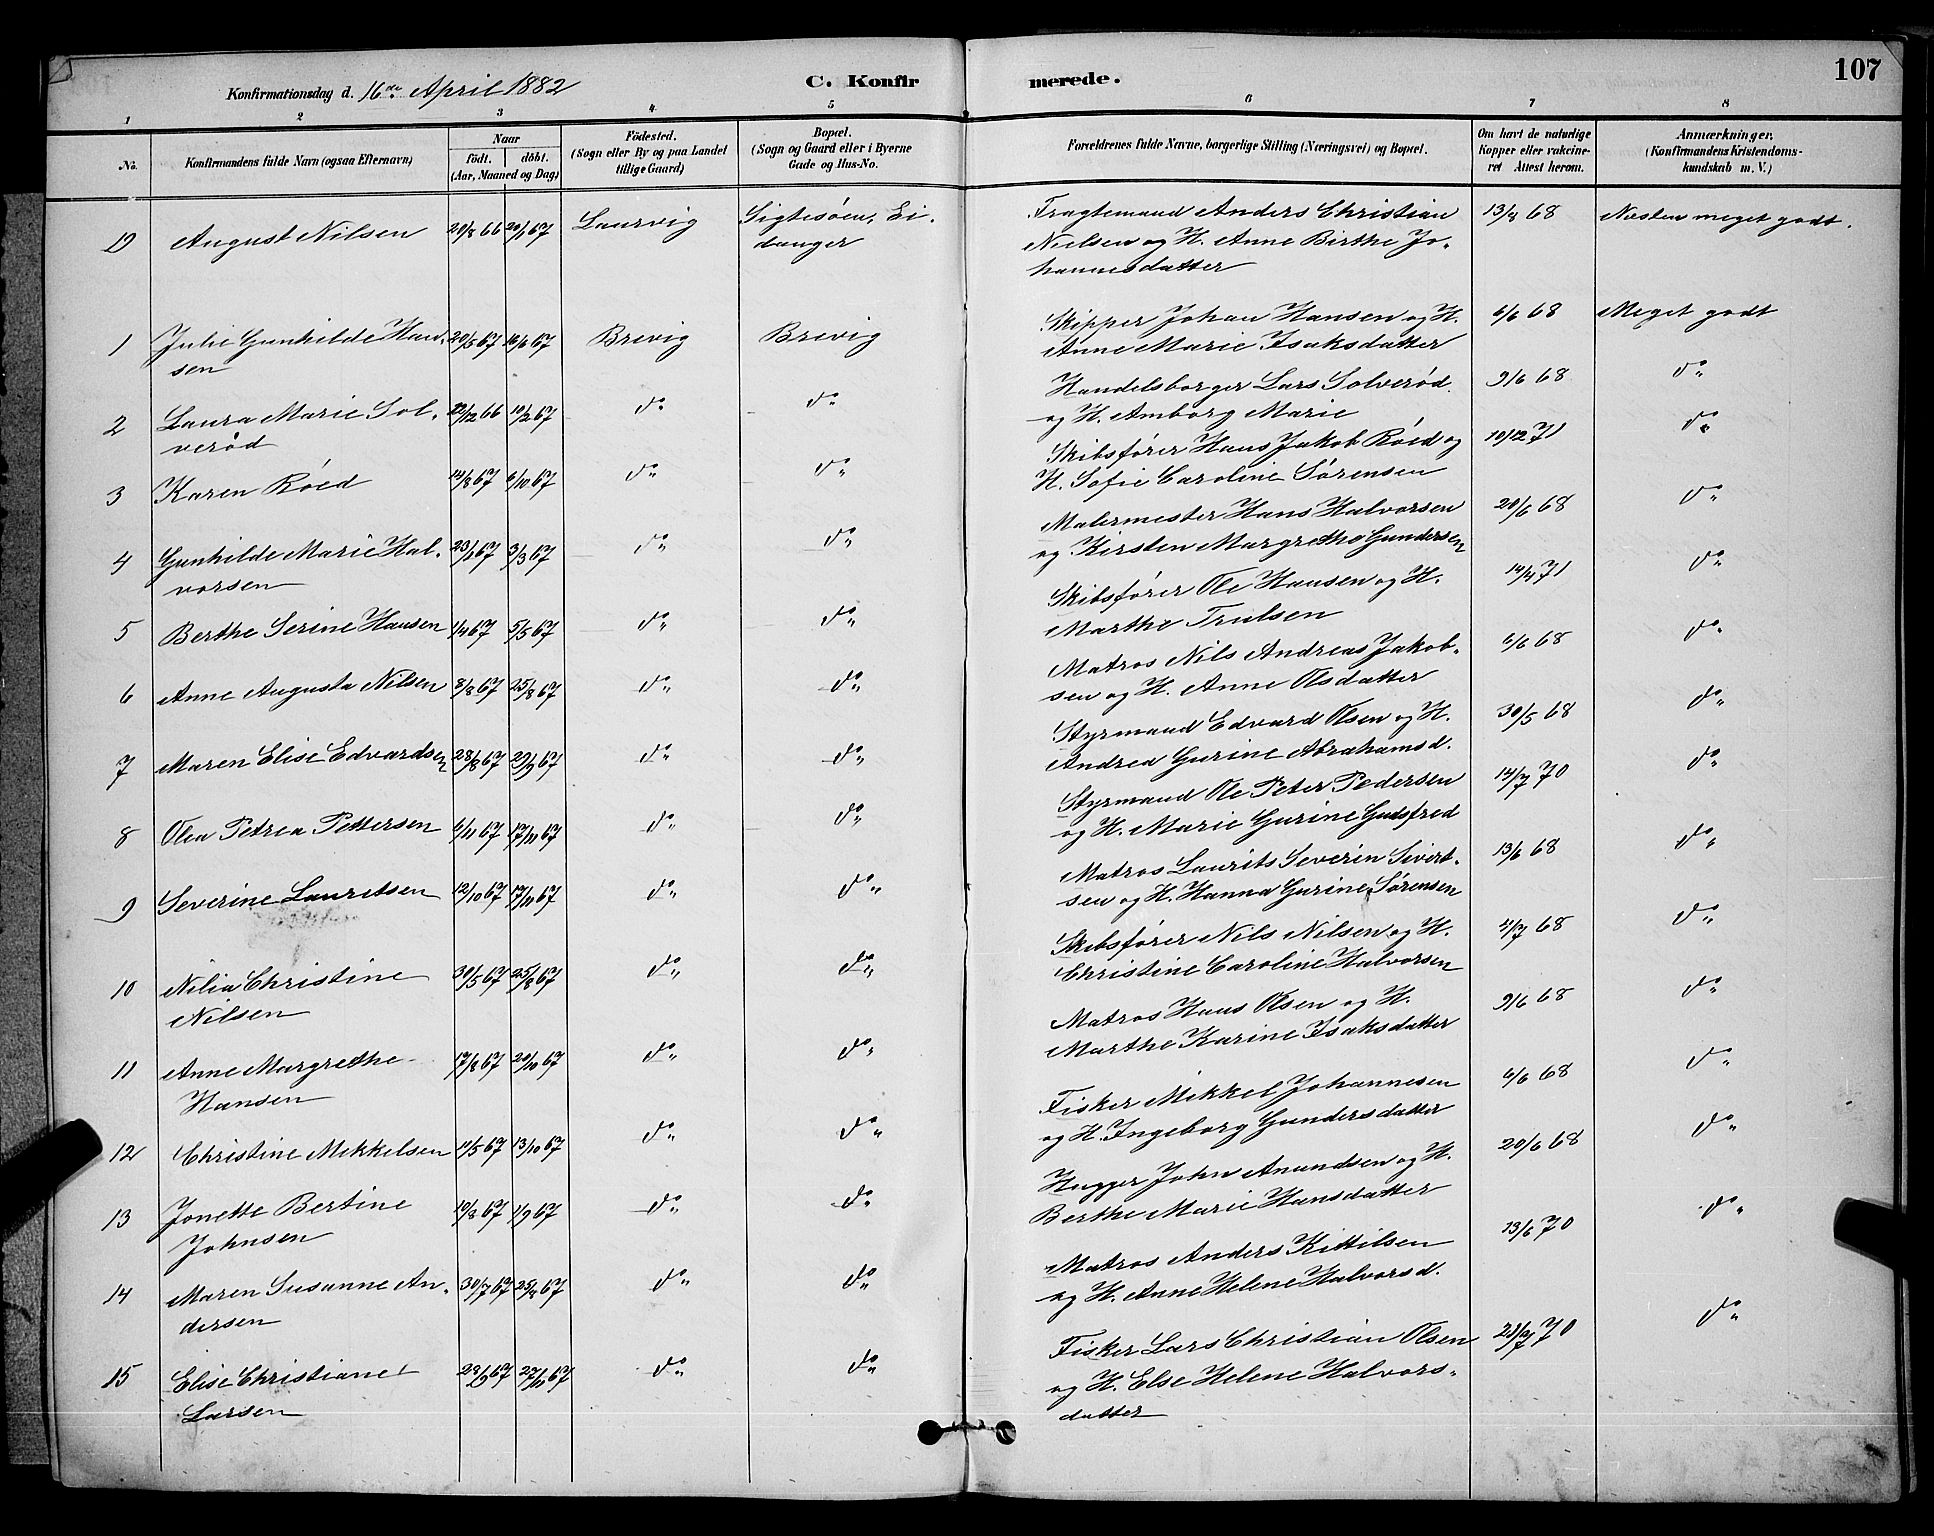 107
Konfirmationsdag d. 16de April 1882
C. Konfirmerede.
1 2 3 4 5 6 7 8
No.
Konfirmandens fulde Navn (ogsaa Efternavn)
Naar
födt. döbt.
(Aar, Maaned og Dag)
Födested.
(Sogn eller By og paa Landet
tillige Gaard)
Bopæl.
(Sogn og Gaard eller i Byerne
Gade og Hus-No.
Forældrenes fulde Navne, borgerlige Stilling (Næringsvei) og Bopæl.
Om havt de naturlige
Kopper eller vakcine-
ret Attest herom.
Anmærkninger,
(Konfirmandens Kristendoms-
kundskab m. V.)
19 August Nilsen 20/8 66 20/1 67 Laurvig Sigtesöen, Ei-
danger
Fragtemand Anders Christian
Nielsen og H. Anne Birthe Jo-
hannesdatter
13/8 68 Næsten meget godt.
1 Julie Gunhilde Han-
sen
20/5 67 16/6 67 Brevig Brevig
Skipper Johan Hansen og H.
Anne Marie Isaksdatter
6/6 68 Meget godt
2 Laura Marie Sol-
verød
29/12 66 10/2 67 do do
Handelsborger Lars Solverød
og H. Amborg Marie
9/6 68 do
3 Karen Röed 14/8 67 6/10 67 do do
Skibsfører Hans Jakob Röed og
H. Sofie Caroline Sørensen
10/12 71 do
4 Gunhilde Marie Hal-
vorsen
23/1 67 3/3 67 do do
Malermester Hans Halvorsen
og Kirsten Margrethe Gundersen
20/6 68 do
5 Berthe Serine Hansen 1/4 67 5/5 67 do do
Skibsfører Ole Hansen og H.
Marthe Trulsen
14/4 71 do
6 Anne Augusta Nilsen 8/8 67 25/8 67 do do
Matros Nils Andreas Jakob-
sen og H. Anne Olsdatter
6/6 68 do
7 Maren Elise Edvardsen 28/8 67 29/9 67 do do
Styrmand Edvard Olsen og H.
Andrea Gurine Abrahamsd.
30/5 68 do
8 Olea Petrea Pettersen 6/11 67 17/11 67 do do
Styrmand Ole Peter Pedersen
og H. Marie Gurine Gudsfred
14/7 70 do
9 Severine Lauritsen 12/10 67 17/11 67 do do
Matros Laurits Severin Sivert-
sen og H. Hanna Gurine Sørensen
13/6 68 do
10 Nilia Christine
Nilsen
30/5 67 25/8 67 do do
Skibsfører Nils Nilsen og H.
Christine Caroline Halvorsen
4/7 68 do
11 Anne Margrethe
Hansen
17/8 67 20/10 67 do do
Matros Hans Olsen og H.
Marthe Karine Isaksdatter
9/6 68 do
12 Christine Mikkelsen 11/5 67 13/10 67 do do
Fisker Mikkel Johannesen
og H. Ingeborg Gundersdatter
6/6 68 do
13 Jonette Bertine
Johnsen
19/8 67 1/9 67 do do
Hugger John Anundsen og H.
Berthe Marie Hansdatter
20/6 68 do
14 Maren Susanne An-
dersen
30/7 67 25/8 67 do do
Matros Anders Kittilsen
og H. Anne Helene Halvorsd.
13/6 70 do
15 Elise Christiane
Larsen
29/9 67 27/11 67 do do
Fisker Lars Christian Olsen
og H. Else Helene Halvors-
datter
23/7 70 do